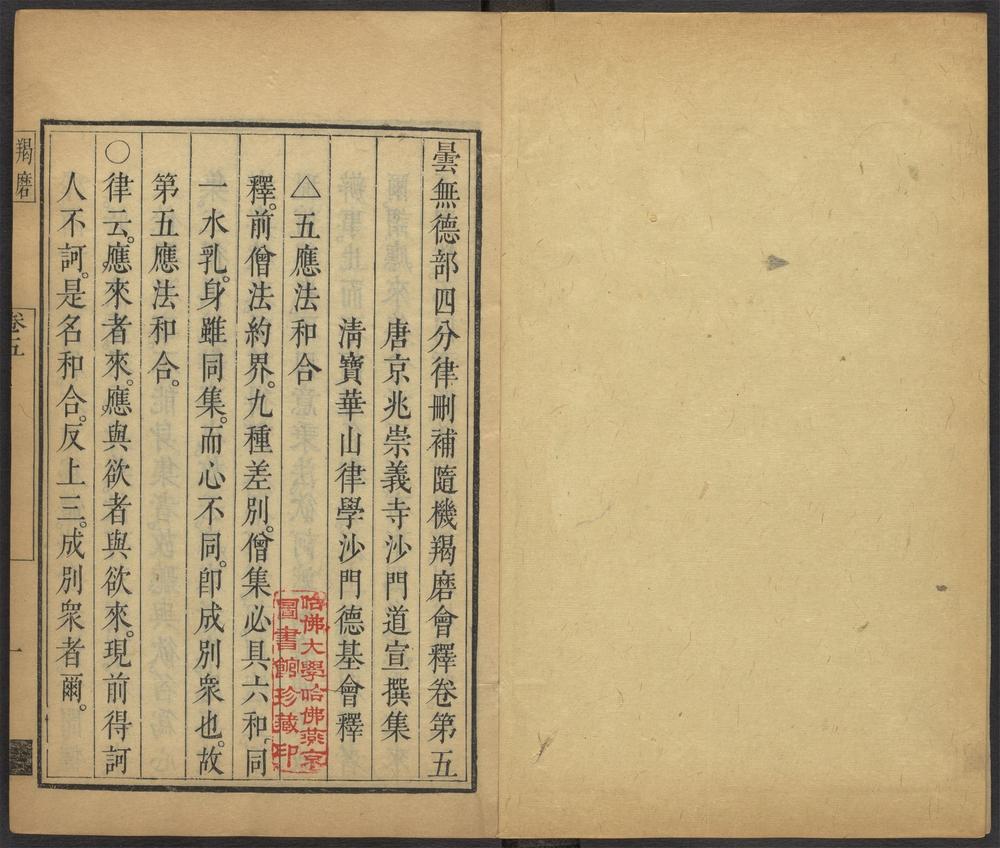 曇無德部四分律刪補隨機羯磨會釋卷第五
唐京兆崇義寺沙門道宣撰集
淸寶華山律學沙門德基會釋
△五應法和合
釋。前僧法約界。九種差別。僧集必具六和。同
一水乳。身雖同集。而心不同。卽成別衆也。故
第五應法和合。
○律云。應來者來。應與欲者與欲來。現前得訶
人不訶。是名和合。反上三。成別衆者爾。
羯磨
卷五
一
哈佛大學哈佛燕京
圖書館珍藏印